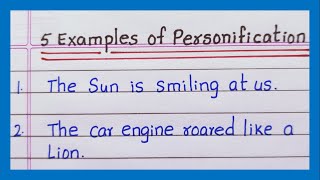 5 Examples of Personification
1. The Sun is smiling at us.
2. The car engine roared like a
Lion.